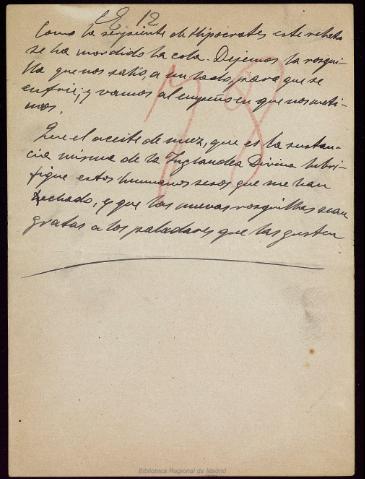 E. 12
Como la serpiente de Hipocrates este relato
se ha mordido la cola. Dejemos la rosqui-
lla que nos salió, a un lado, para que se
enfrie; y vamos al empeño en que nos meti-
mos.
Que el aceite de nuez, que es la sustan-
cia misma de la Inglandea Divina lubri-
fique estos humanos sesos que me han
echado, y que las nuevas rosquillas sean
gratas a los paladares que las gusten
Biblioteca Regional de Madrid